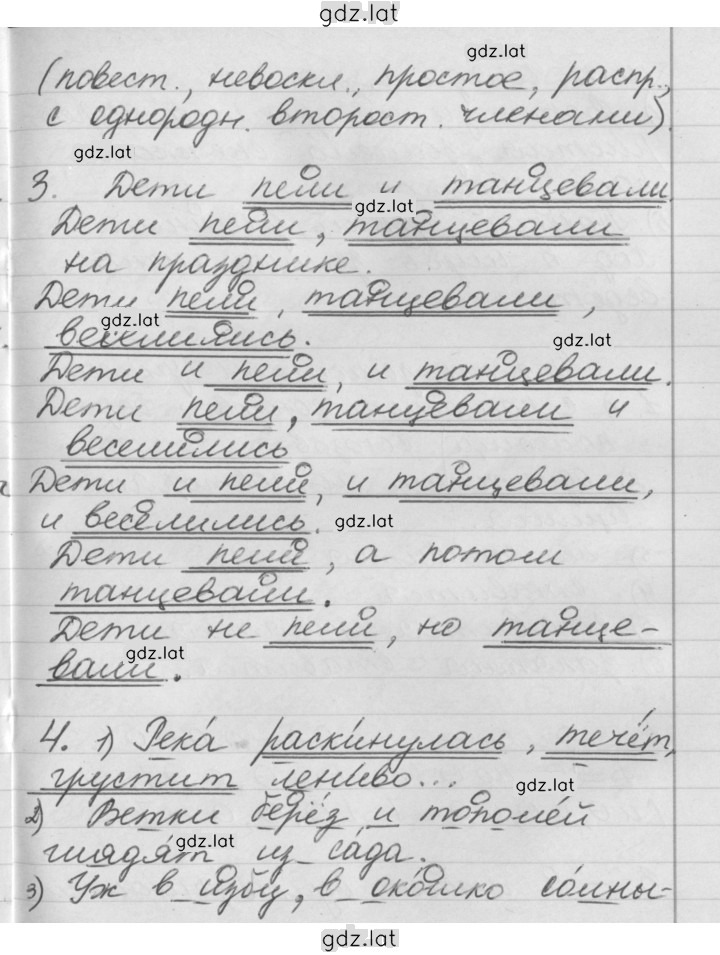 gdz.lat
gdz.lat
(повест., невоскл., простое, распр.,
с однородн. второст. членами)
gdz.lat
3. Дети пели и танцевали.
gdz.lat
Дети пели, танцевали
на празднике.
Дети пели, танцевали,
gdz.lat
веселились.
gdz.lat
Дети и пели, и танцевали.
Дети пели, танцевали и
веселились
Дети и пели, и танцевали,
и веселились.
gdz.lat
Дети пели, а потом
танцевали.
Дети не пели, но танце-
gdz.lat
вали.
4. 1) Река́ раски́нулась, тече́т,
грустит лени́во...
gdz.lat
2) Ветки берёз и тополе́й
gdz.lat
глядя́т из са́да.
3) Уж в избу, в око́шко со́лны-
gdz.lat